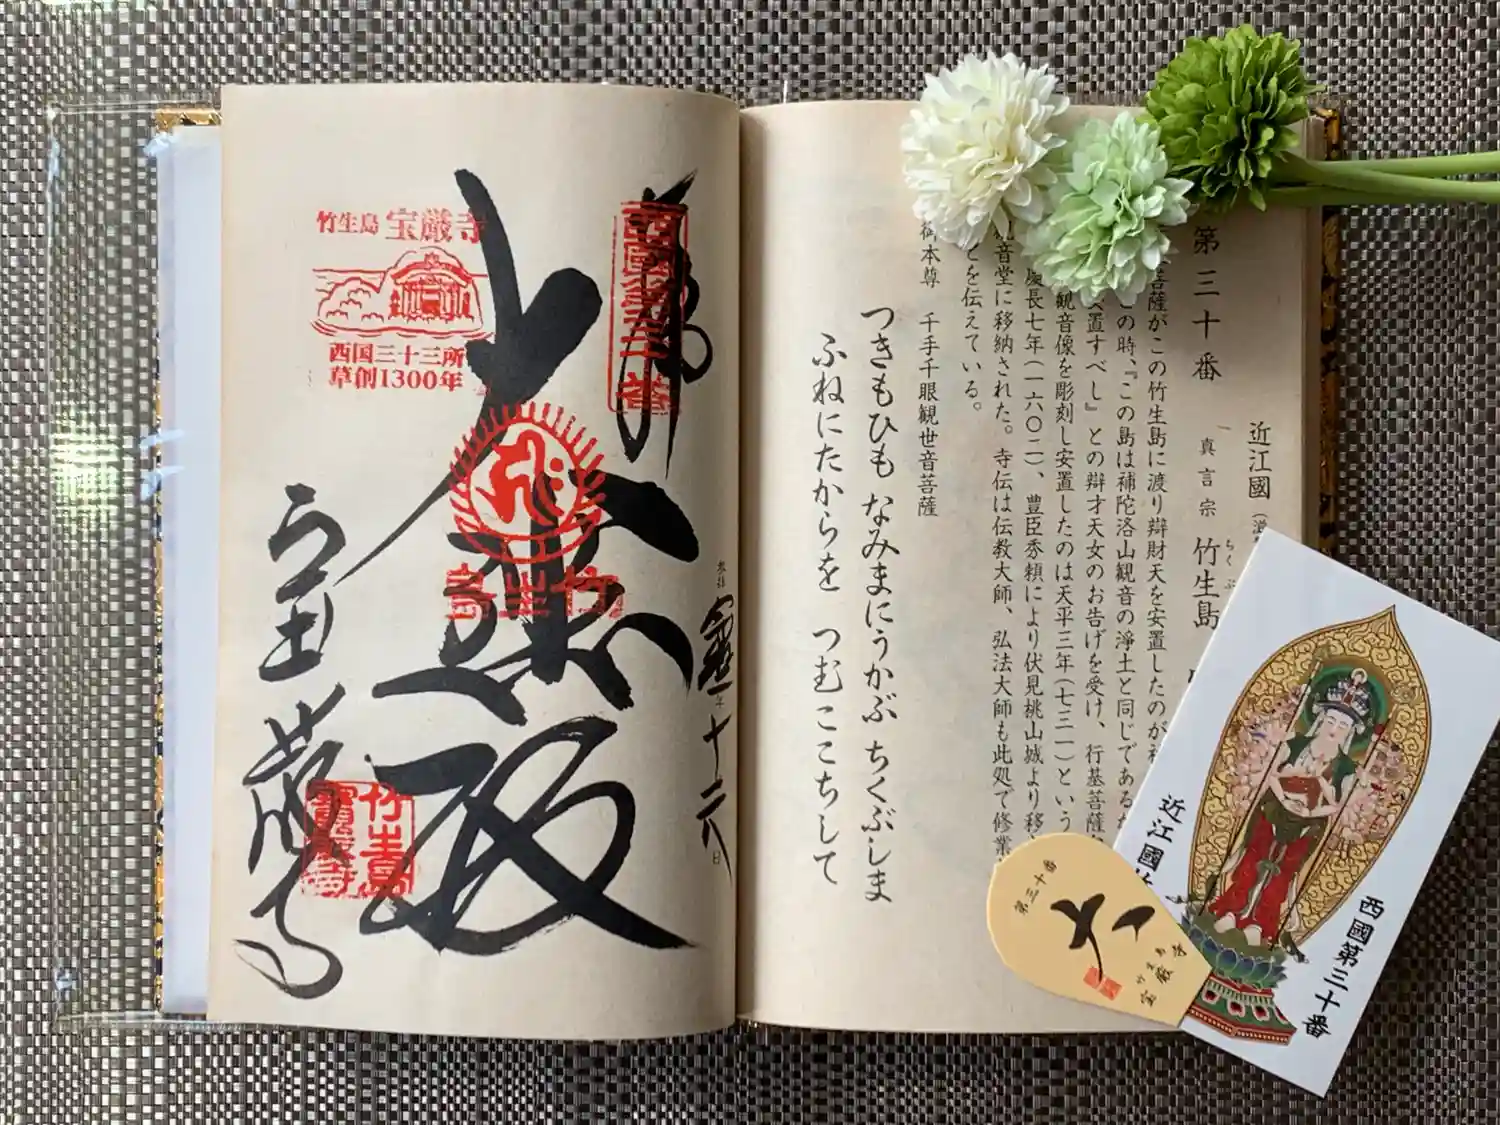 近江國
第三十番
真言宗 竹生島
ちくぶ
菩薩がこの竹生島に渡り辯財天を安置したのが
の時、『この島は補陀洛山観音の浄土と同じである
安置すべし』との辯才天女のお告げを受け、行基菩薩
観音像を彫刻し安置したのは天平三年(七三一)という
慶長七年(一六〇二)、豊臣秀頼により伏見桃山城より移
観音堂に移納された。寺伝は伝教大師、弘法大師も此処で修業
とを伝えている。
御本尊 千手千眼観世音菩薩
つきもひも なみまにうかぶ ちくぶしま
ふねにたからを つむここちして
奉拝
十二月
日
西國第三十番
大悲殿
竹生島
竹生島 宝厳寺
西国三十三所
草創1300年
竹生島
寳厳寺
西國第三十番
近江國
第三十番
竹生島
宝厳寺